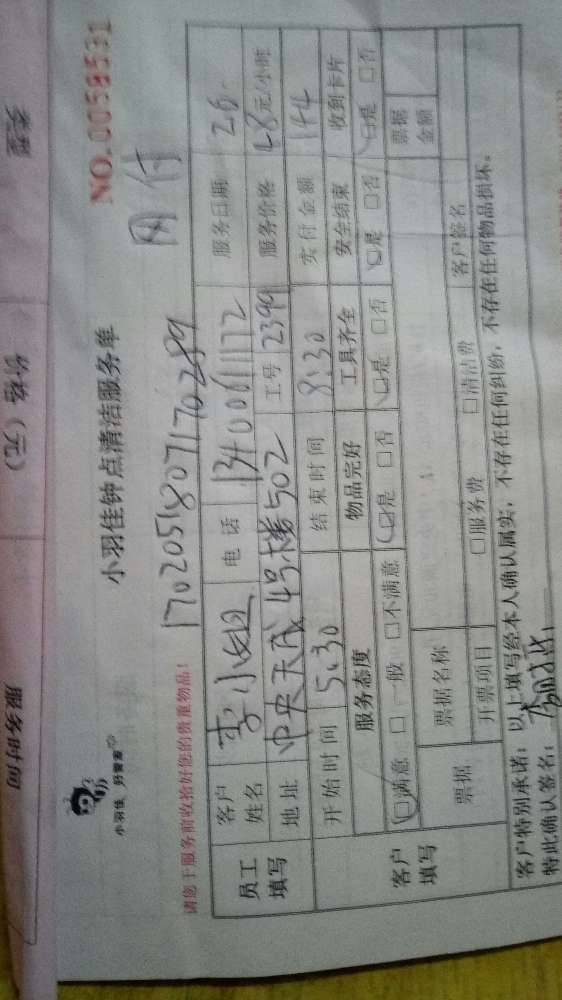 NO.0058531
小羽佳钟点清洁服务单
小羽佳 好管家
网付
1702051807170289
请您于服务前收拾好您的贵重物品!
员工填写
客户姓名 李小姐 电话 13400611172 服务日期 26.
地址 中央天成4号楼502 工号 2399 服务价格 48元/小时
客户填写
开始时间 5:30 结束时间 8:30 实付金额 144
服务态度 物品完好 工具齐全 安全结束 收到卡片
☑满意 □一般 □不满意 ☑是 □否 ☑是 □否 ☑是 □否 ☑是 □否
票据 票据名称 票据金额
开票项目 □服务费 □清洁费 客户签名
客户特别承诺:以上填写经本人确认属实,不存在任何纠纷,不存在任何物品损坏。
特此确认签名:
类型
价格(元)
服务时间